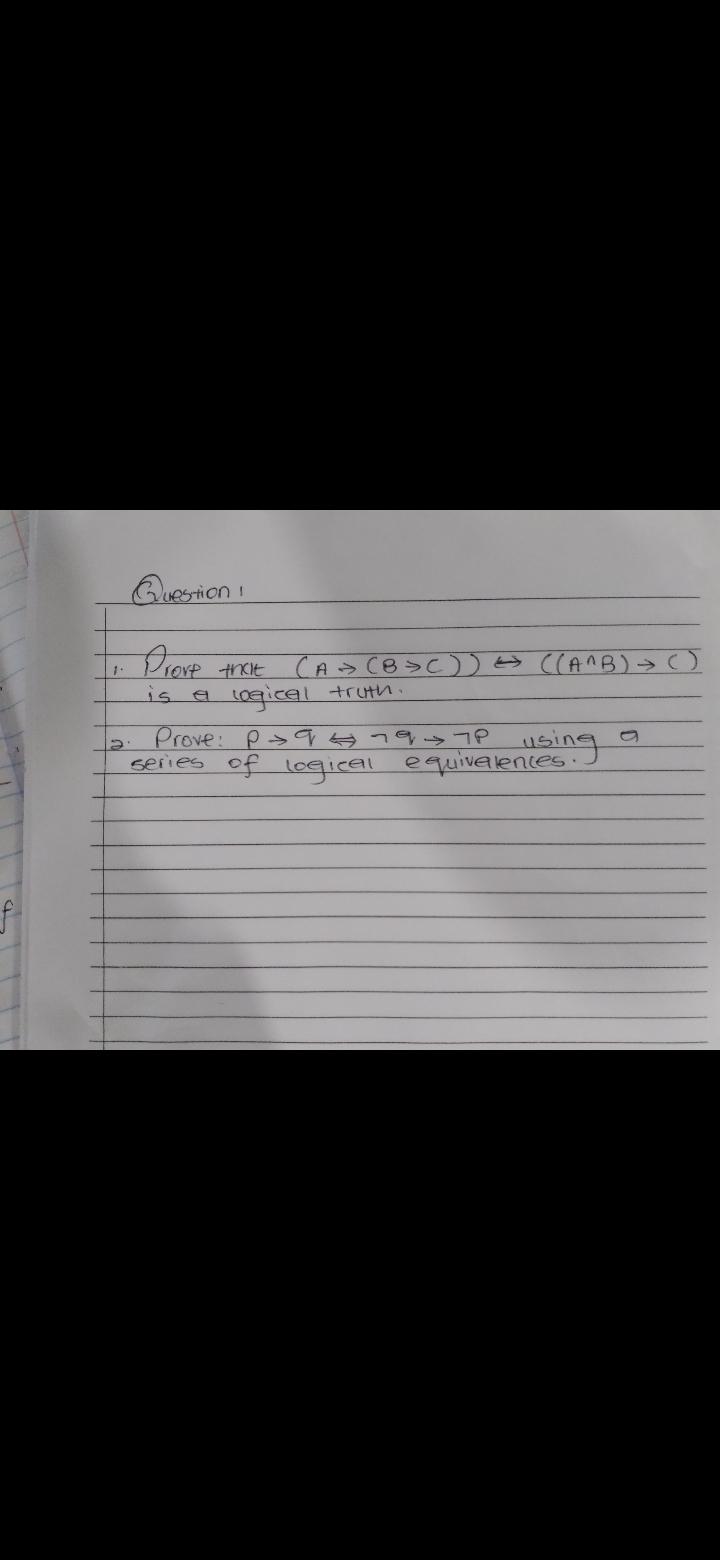 Question 1
1. Prove that (A → (B → C)) ↔ ((A ∧ B) → C)
is a logical truth.
2. Prove: p → q ⇔ ¬q → ¬p using a
series of logical equivalences.
f